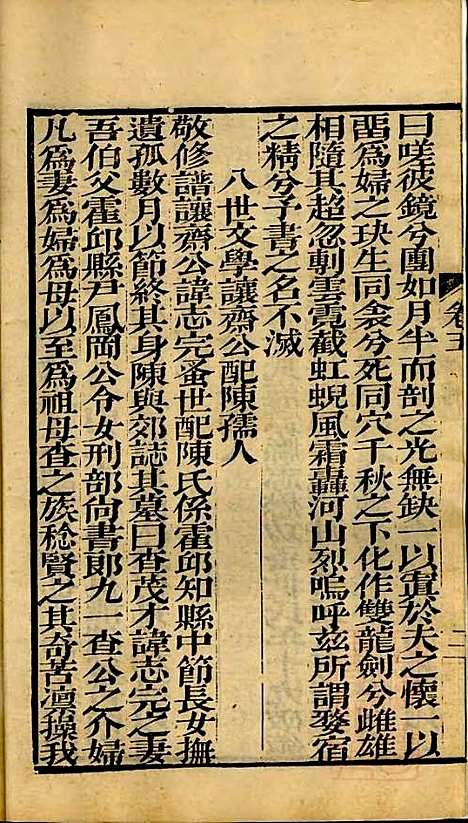 曰嗟彼鏡兮團如月半而剖之光無缺一以寘於夫之懷一以
酉為婦之玦生同衾兮死同穴千秋之下化作雙龍劍兮雌雄
相隨其超忽剸雲霓截虹蜺風霜轟河山烈嗚呼茲所謂婺宿
之精兮予書之名不滅
八世文學讓齋公配陳孺人
敬修譜讓齋公諱志完蚤世配陳氏係霍邱知縣中節長女撫
遺孤數月以節終其身陳與郊誌其墓曰查茂才諱志完之妻
吾伯父霍邱縣尹鳳岡公令女刑部尙書郎九一查公之介婦
凡為妻為婦為母以至為祖母查之族稔賢之其奇苦凛操我
卷五